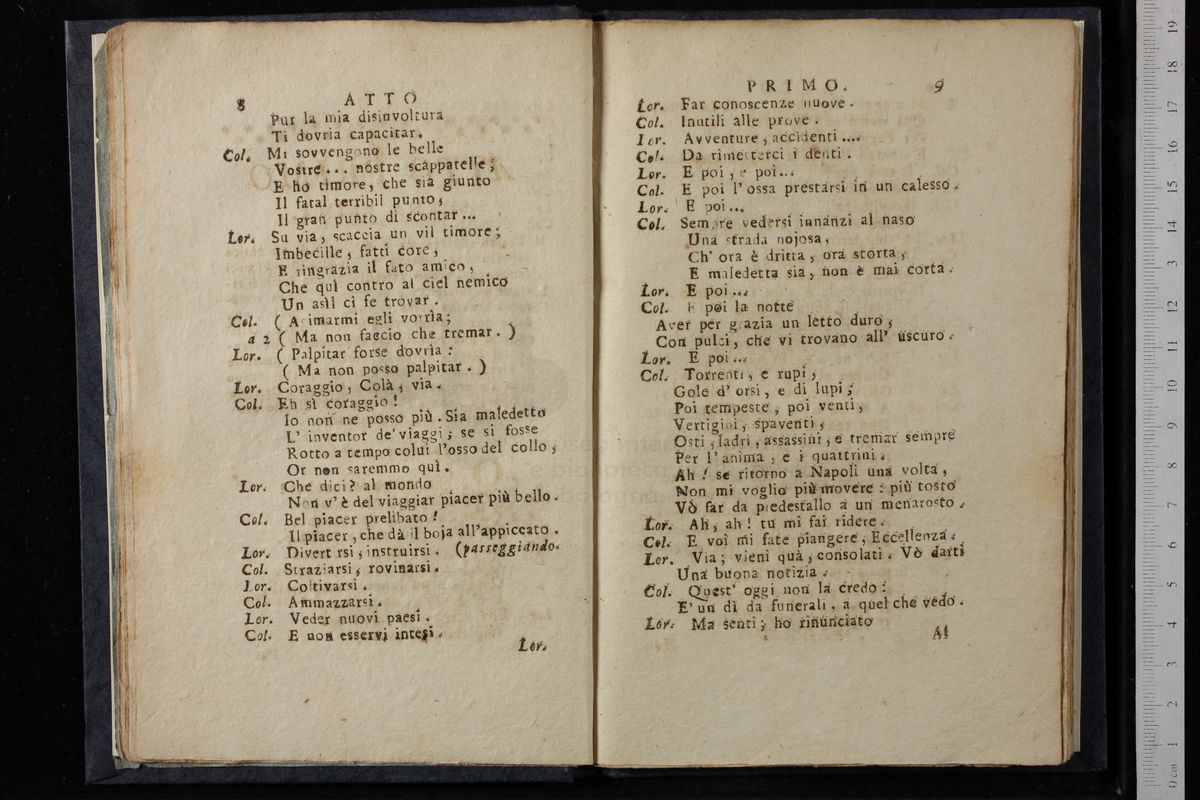 8 ATTO
Pur la mia disinvoltura
Ti dovria capacitar.
Col. Mi sovvengono le belle
Vostre ... nostre scappatelle;
E ho timore, che sia giunto
Il fatal terribil punto,
Il gran punto di scontar ...
Lor. Su via, scaccia un vil timore;
Imbecille, fatti core,
E ringrazia il fato amico,
Che quì contro al ciel nemico
Un asìl ci fe trovar.
Col. ( Animarmi egli vorrìa;
a 2 ( Ma non faccio che tremar. )
Lor. ( Palpitar forse dovrìa:
( Ma non posso palpitar. )
Lor. Coraggio, Colà, via.
Col. Eh sì coraggio!
Io non ne posso più. Sia maledetto
L' inventor de' viaggi; se si fosse
Rotto a tempo colui l'osso del collo,
Or non saremmo quì.
Lor. Che dici? al mondo
Non v' è del viaggiar piacer più bello.
Col. Bel piacer prelibato!
Il piacer, che dà il boja all'appiccato.
Lor. Divertirsi, instruirsi. (passeggiando.
Col. Straziarsi, rovinarsi.
Lor. Coltivarsi.
Col. Ammazzarsi.
Lor. Veder nuovi paesi.
Col. E non esservi intesi.
Lor.
PRIMO. 9
Lor. Far conoscenze nuove.
Col. Inutili alle prove.
Lor. Avventure, accidenti ....
Col. Da rimetterci i denti.
Lor. E poi, e poi...
Col. E poi l'ossa prestarsi in un calesso.
Lor. E poi...
Col. Sempre vedersi innanzi al naso
Una strada nojosa,
Ch' ora è dritta, ora storta,
E maledetta sia, non è mai corta.
Lor. E poi ...
Col. E poi la notte
Aver per grazia un letto duro,
Con pulci, che vi trovano all' uscuro.
Lor. E poi...
Col. Torrenti, e rupi,
Gole d' orsi, e di lupi;
Poi tempeste, poi venti,
Vertigini, spaventi,
Osti, ladri, assassini, e tremar sempre
Per l'anima, e i quattrini.
Ah! se ritorno a Napoli una volta,
Non mi voglio più movere: più tosto
Vò far da piedestallo a un menarosto.
Lor. Ah, ah! tu mi fai ridere.
Col. E voi mi fate piangere, Eccellenza.
Lor. Via; vieni quà, consolati. Vò darti
Una buona notizia.
Col. Quest' oggi non la credo:
E' un dì da funerali, a quel che vedo.
Lor. Ma senti; ho rinunciato
Al